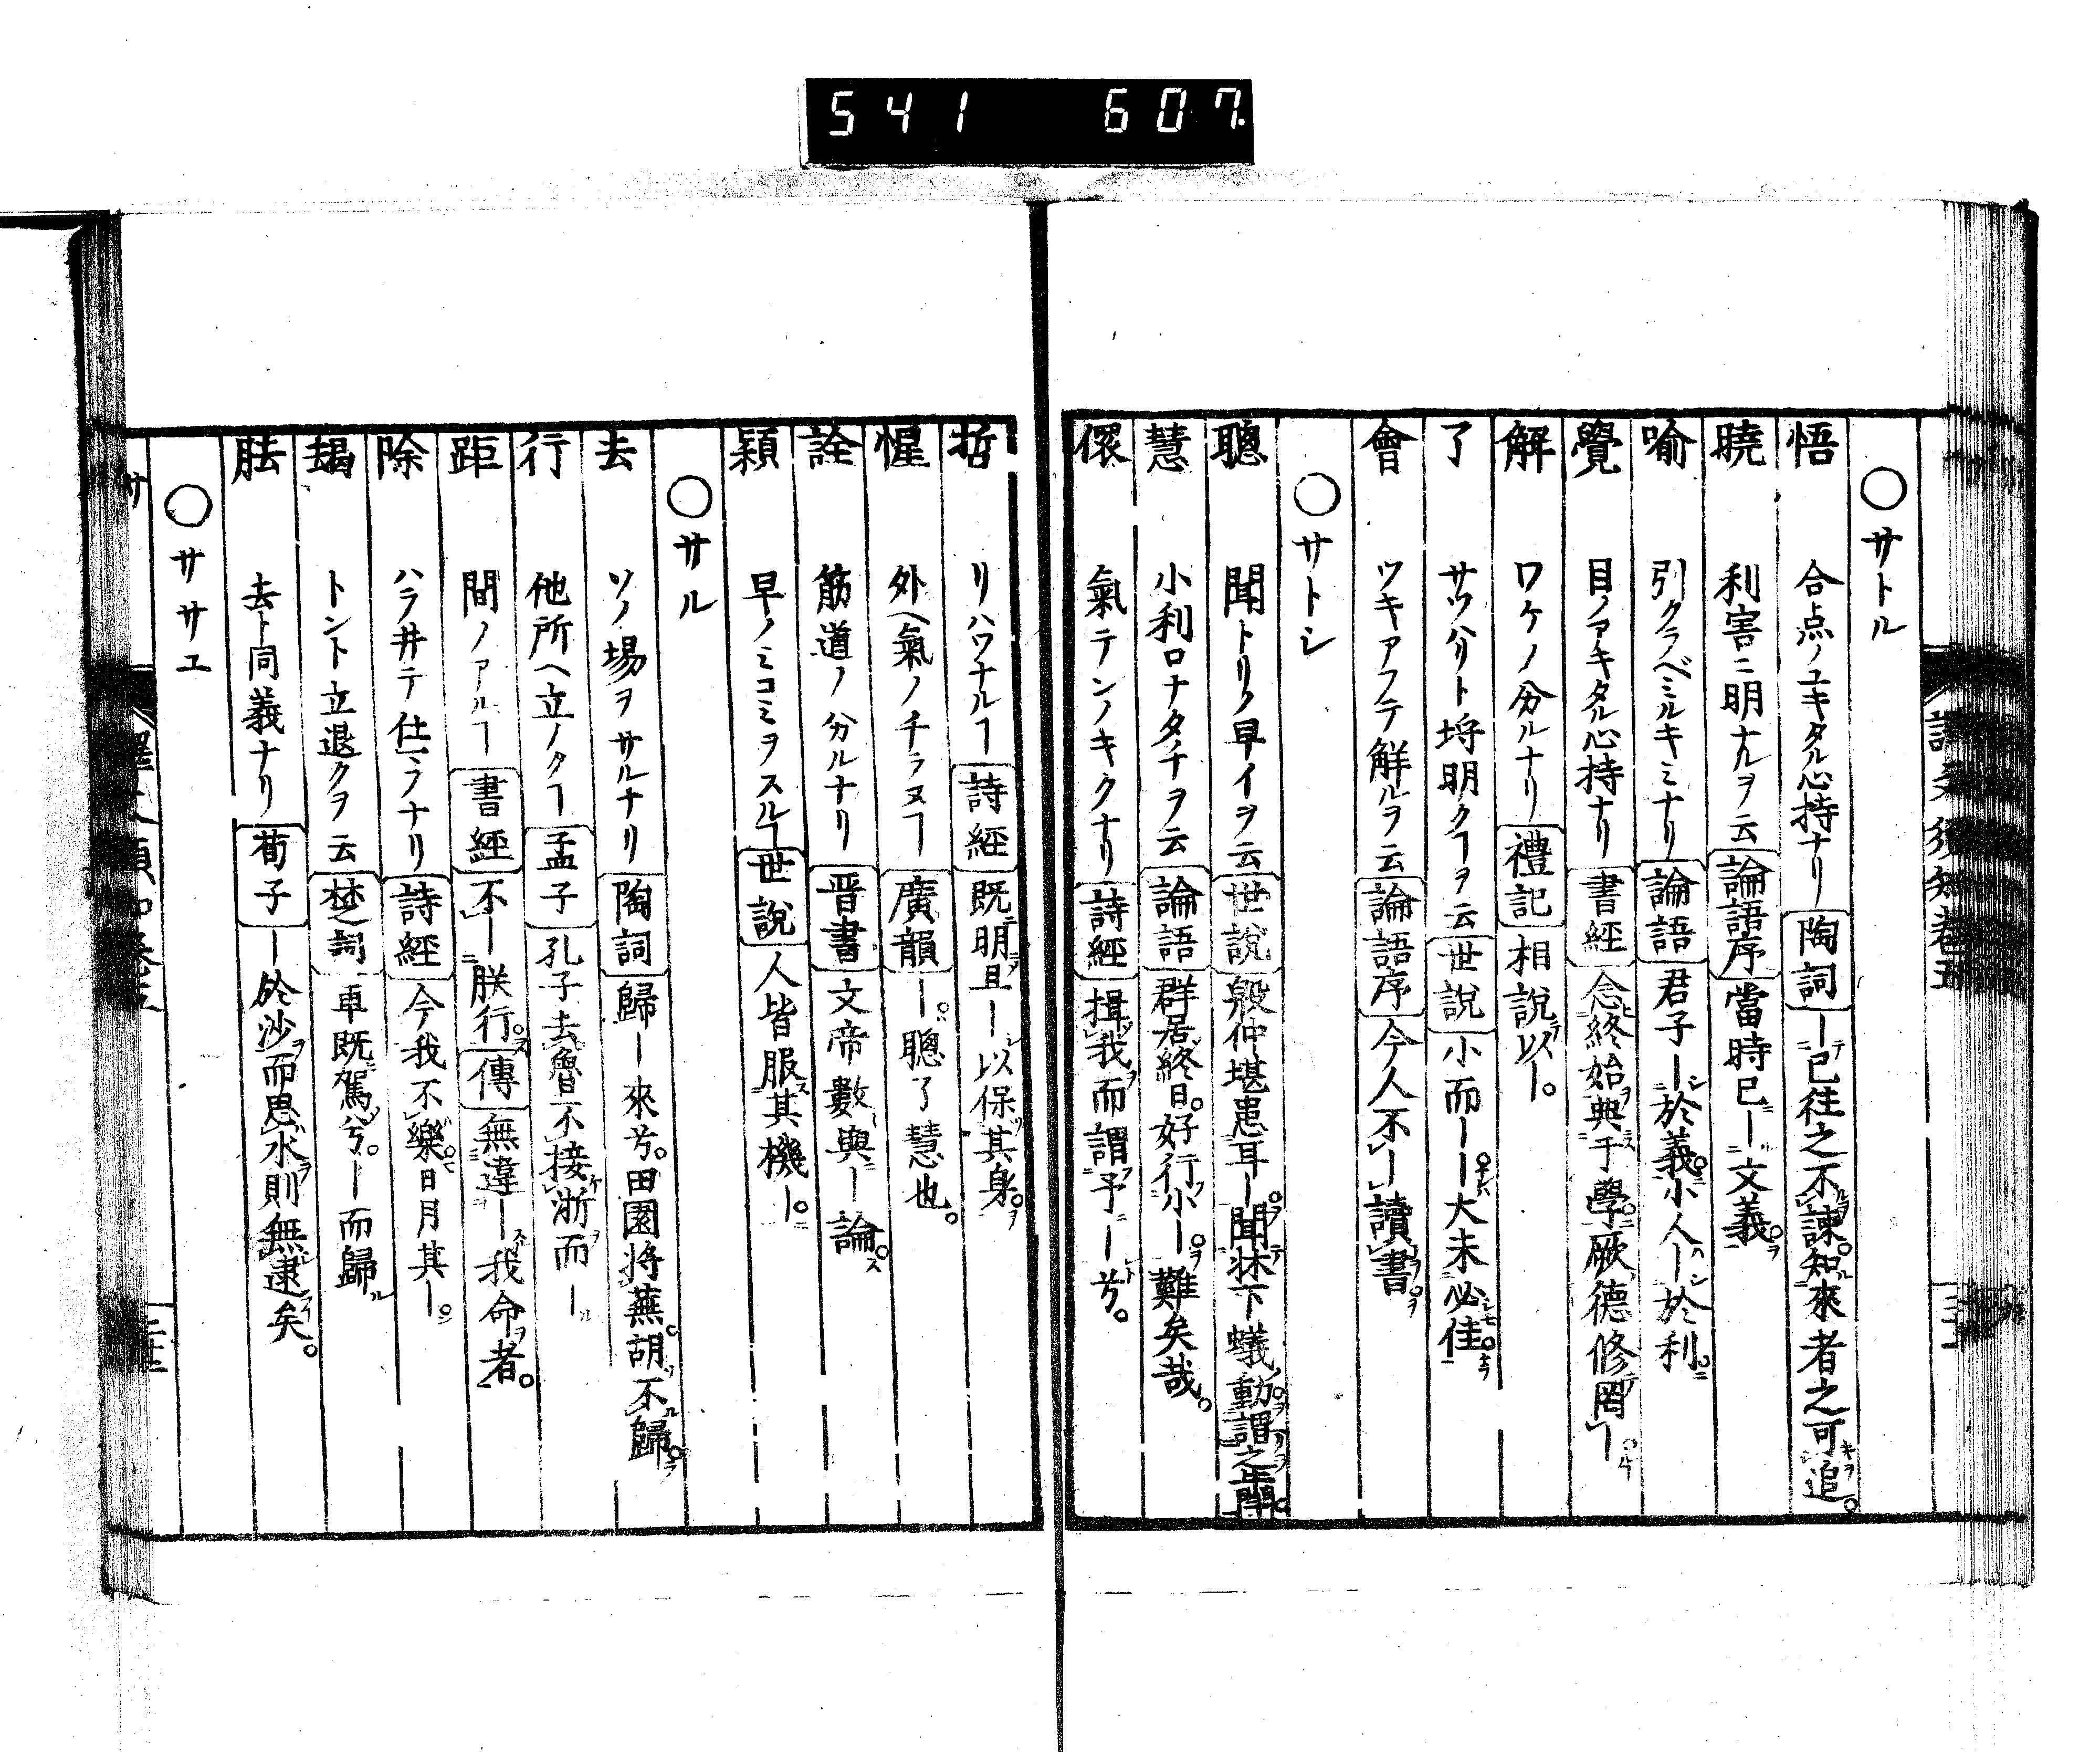 541 607.
譯文須知卷五
○サトル
悟 合点ノユキタル心持ナリ 陶詞 ー已往之不諫知來者之可追。
曉 利害ニ明ナルヲ云 論語序 當時已ー文義。
喻 引クラベミルキミナリ 論語 君子ー於義。小人ー於利。
覺 目ノアキタル心持ナリ 書經 念終始典于學。厥德修罔ー。
解 ワケノ分ルナリ 禮記 相說以ー。
了 サツハリト埒明クヿヲ云 世說 小而ーー。大未必佳。
會 ツキアフテ解ルヲ云 論語序 今人不ー讀書。
○サトシ
聰 聞トリノ早イヲ云 世說 殷仲堪患耳ー。聞牀下蟻動。謂之牛鬪。
慧 小利口ナタチヲ云 論語 群居終日。好行小ー。難矣哉。
儇 氣テンノキクナリ 詩經 揖我而謂予ー兮。
哲 リハツナルヿ 詩經 既明且ー以保其身。
惺 外ヘ氣ノチラヌヿ 廣韻 ー。聰了慧也。
詮 筋道ノ分ルナリ 晋書 文帝數與ー論。
穎 早ノミコミヲスルヿ 世說 人皆服其機ー。
○サル
去 ソノ場ヲサルナリ 陶詞 歸ー來兮。田園將蕪。胡不歸。
行 他所ヘ立ノクヿ 孟子 孔子去魯。不接淅而ー
距 間ノアルヿ 書經 不ー朕行。 傳 無違ー我命者。
除 ハラ井テ仕ラフナリ 詩經 今我不樂。日月其ー。
朅 トント立退クヲ云 楚詞 車既駕兮。ー而歸
胠 去ト同義ナリ 荀子 ー於沙而思水則無逮矣。
○ササユ
サ